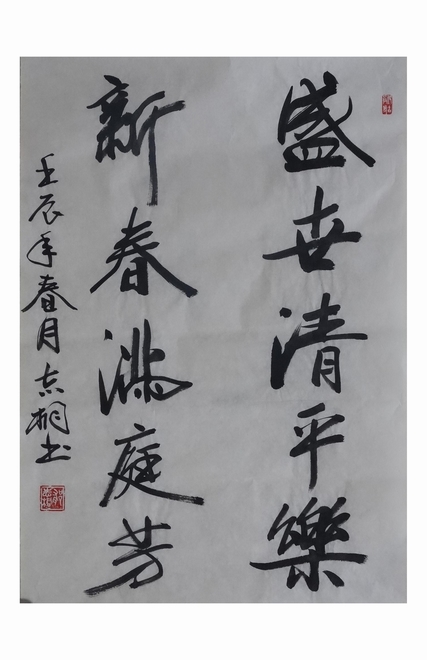 盛世清平樂
新春滿庭芳
壬辰年春月志桐书